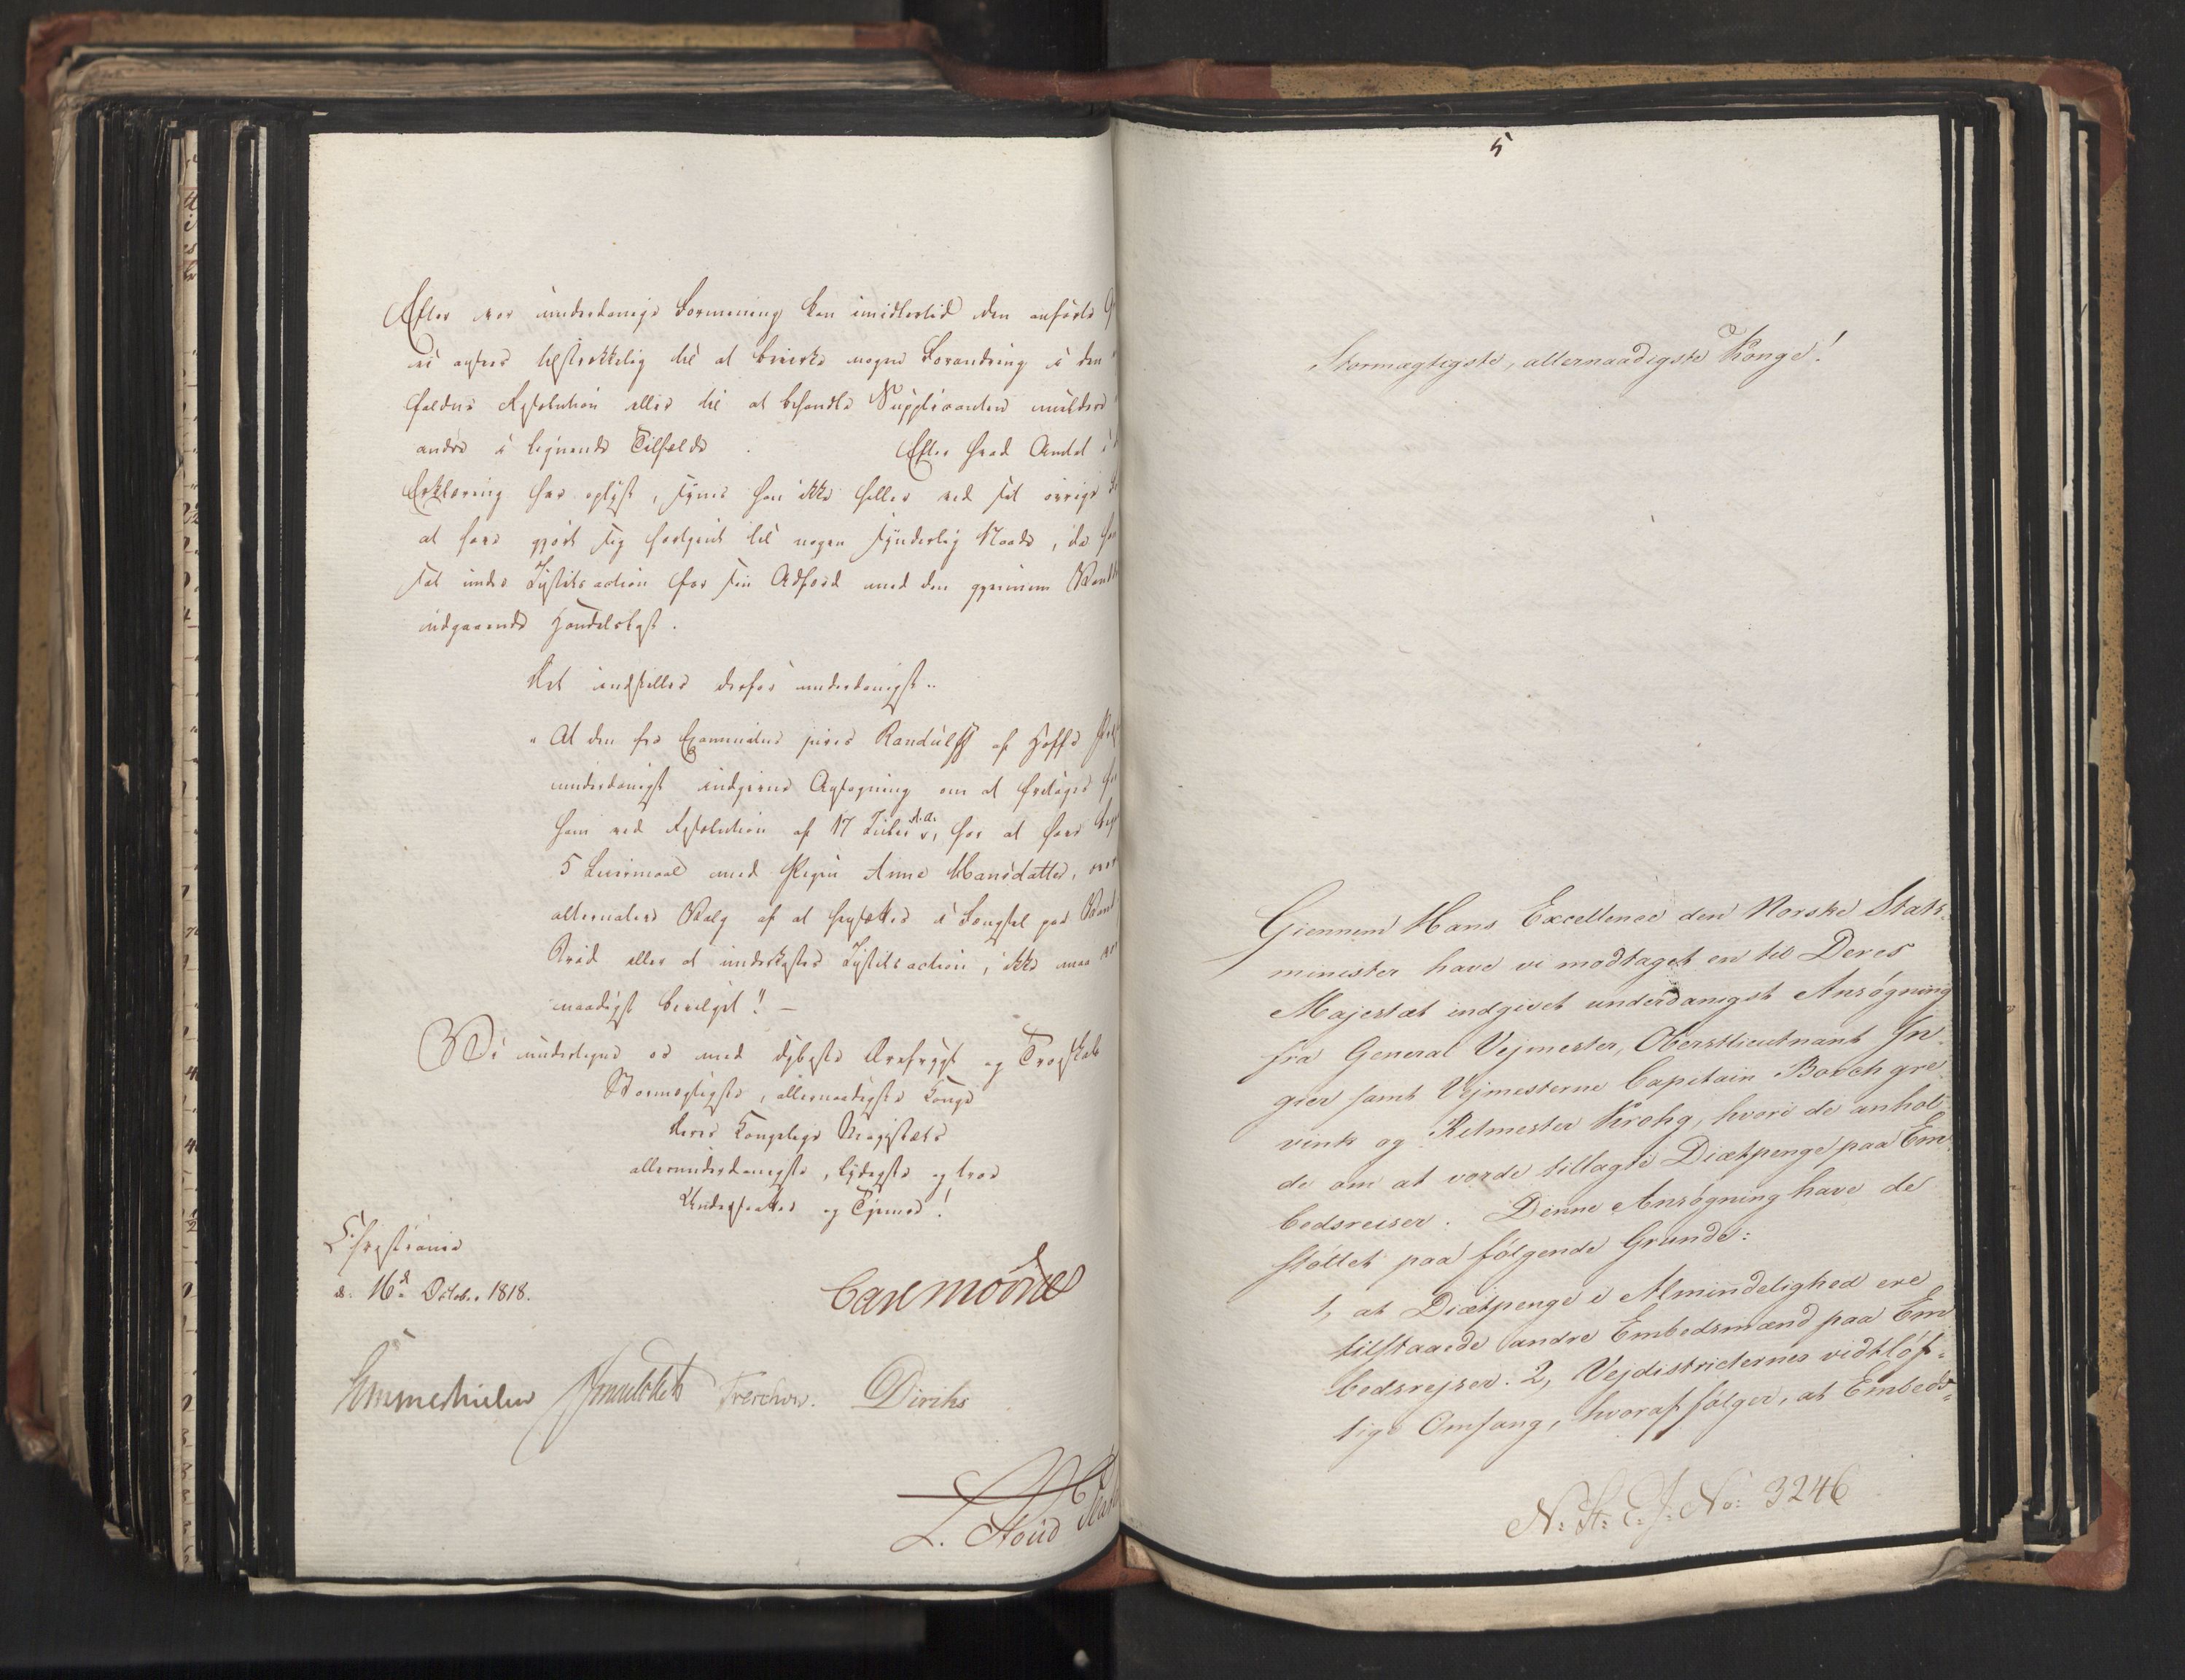 Efter vor underdanige Formening kan imidlertid den anførte
ei agtes tilstrækkelig til at bevirke nogen Forandring i den
faldne Resolution eller til at behandle Supplicanten mildere
andre i lignende Tilfælde. Efter hvad Amtet i
Erklæring har oplyst, synes han ikke heller ved sit øvrige
at have gjort sig fortjent til nogen synderlig Naade, da
sat under Justits action for sin Adfærd med den gjennem
indgaaende Handelslast.
Det indstilles derfor underdanigst:
"At den fra Examinatus juris Randulff af Hoffs
underdanigst indgivne Ansøgning om at fritages
ham ved Resolution af 17 Julii d.a., for at have
5 Leiermaal med Pigen Anne Hansdatter,
alternative Valg af at hensættes i Fængsel paa Vand
Brød eller at underkastes Justits action, ikke maa
naadigst bevilget." —
Vi undertegne os med dybeste Ærefrygt og Troeskab
Stormægtigste, allernaadigste Konge
Deres Kongelige Majestæts
allerunderdanigste, lydigste og troe
Undersaatter og Tjenere!
Christiania
d. 16d October 1818.
Carl Mörner
Sommerhielm Treschow. Diriks
L. Roüd
5
Stormægtigste, allernaadigste Konge!
Giennem Hans Excellence den Norske Stats-
minister have vi modtaget en til Deres
Majestæt indgivet underdanigst Ansøgning
fra General Vejmester, Oberstlieutnant In-
gier samt Vejmesterne Capitain Borchgre-
vink og Ritmester Krohg, hvori de anhol-
de om at vorde tillagte Diætpenge paa Em-
bedsreiser. Denne Ansøgning have de
støttet paa følgende Grunde:
1, at Diætpenge i Almindelighed ere
tilstaaede andre Embedsmænd paa Em-
bedsrejser. 2, Vejdistricternes vidtløf-
tige Omfang, hvoraf følger, at Embeds-
N: St: E: J: No: 3246